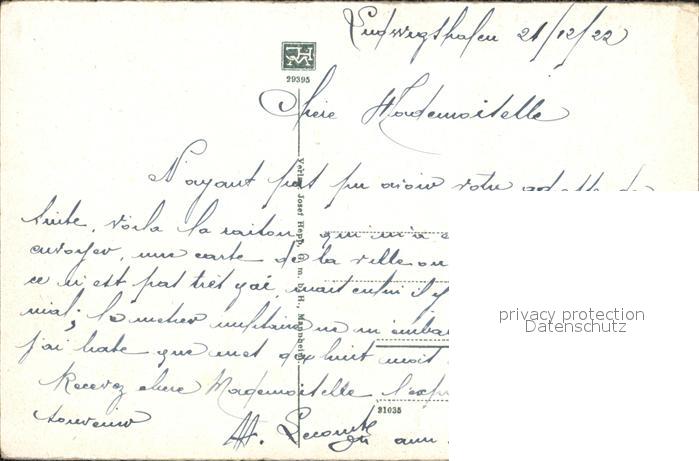 Ludwigshafen 21/12/22
29395
Chère Mademoiselle
N'ayant pas pu avoir votre de
suite, voila la raison, qui m'a
envoyer, une carte de la ville ou
ce n'est pas très gai, mais enfin il y
mal; le métier militaire ne m'embal
j'ai hate que mes dix huit mois
Recevez chère Mademoiselle l'exp
souvenir
H. Lecomte
Verlag Josef Hepp, G. m. b. H., Mannheim.
31035
privacy protection
Datenschutz